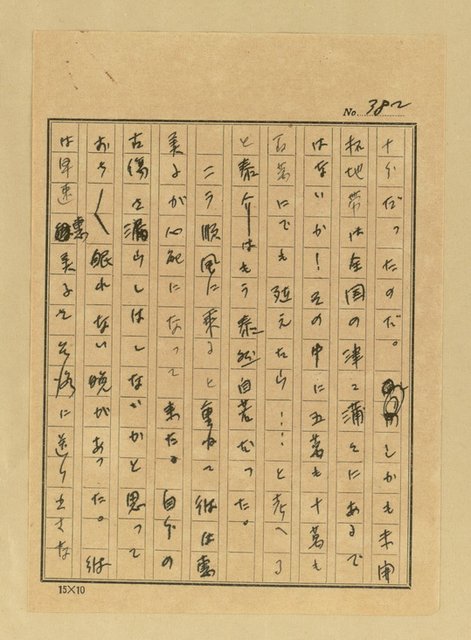 No. 382
十分だったのだ。しかも未開
拓地帯は全国の津々浦々にあるで
はないか！その中に五万も十万も
百万にでも殖えたら……と考へる
と泰介はもう泰然自若だった。
こう順風に乗ると重ねて彼は恵
美子が心配になって来た。自分の
古傷を漏らしはしないかと思って
おち〳〵眠れない晩があった。彼
は早速恵美子を に送り出さな
15×10